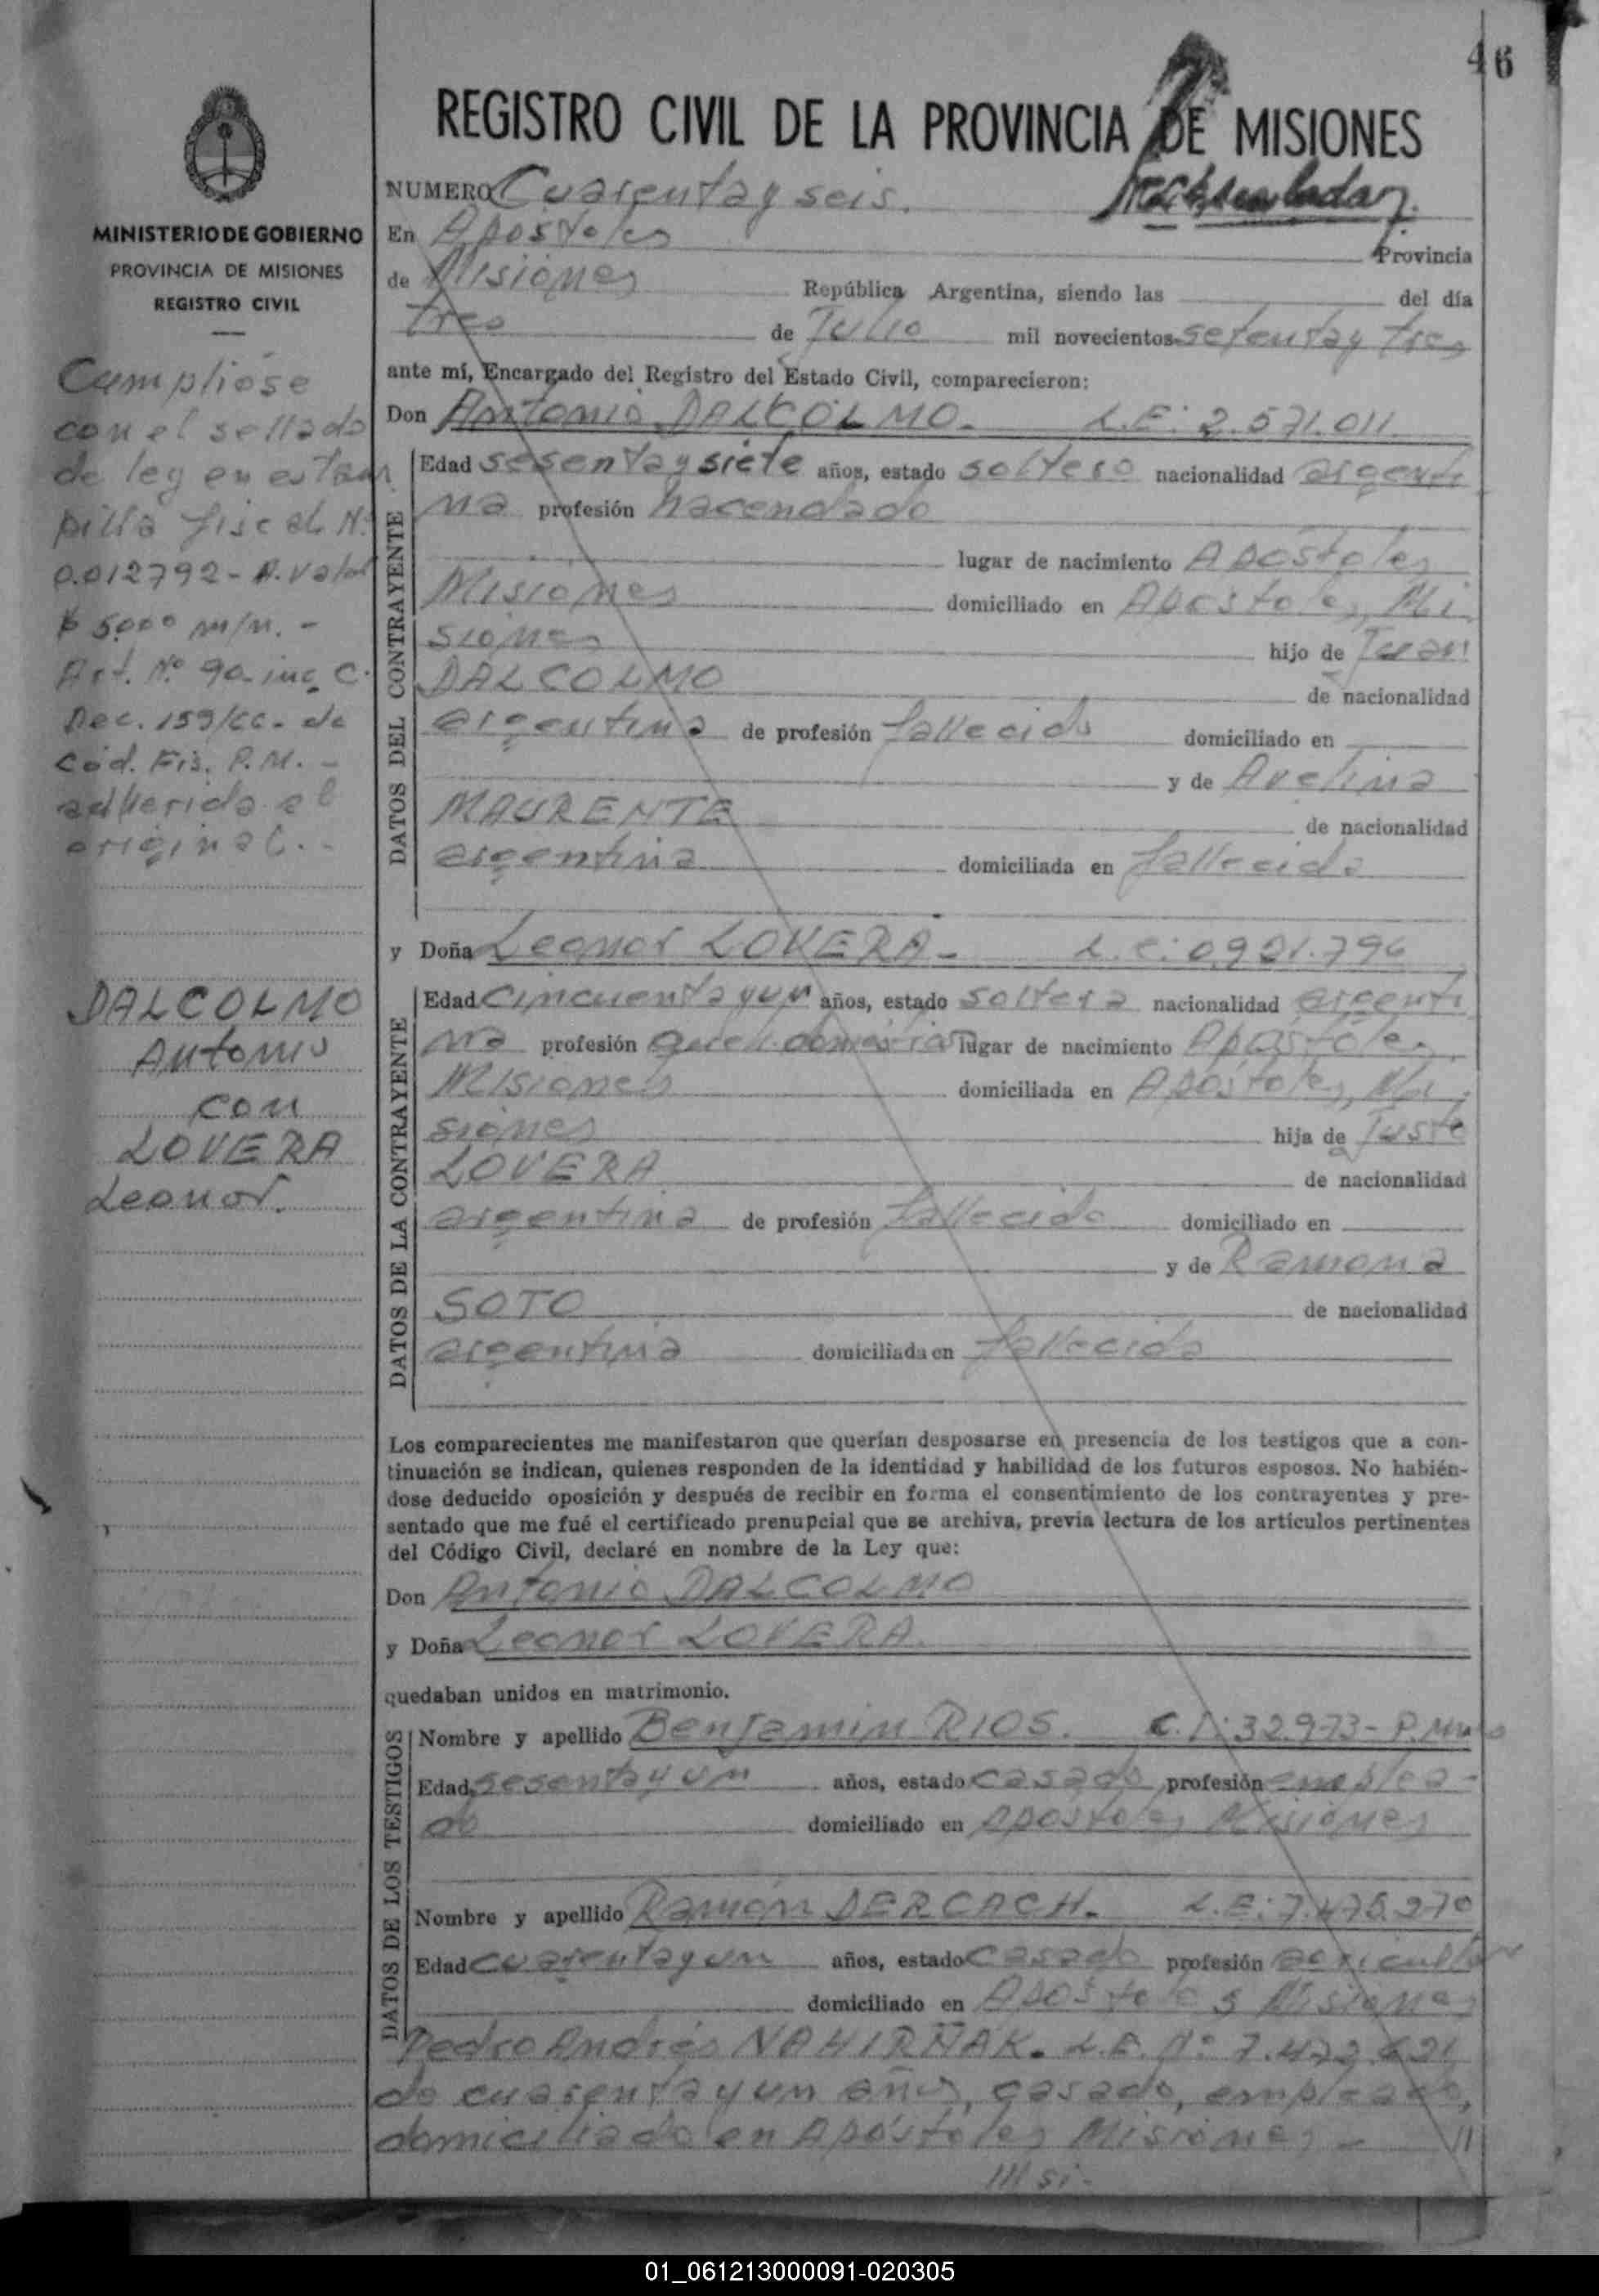 46
REGISTRO CIVIL DE LA PROVINCIA DE MISIONES
MINISTERIO DE GOBIERNO
PROVINCIA DE MISIONES
REGISTRO CIVIL
Cumplióse
con el sellado
de ley en estam
pilla fiscal Nº
0.012792- A. valor
$ 5000 m/n. -
Art. Nº 90- inc. C.
Dec. 159/66- de
Cód. Fis. P.M. -
adherida al
original. -
DALCOLMO
Antonio
con
LOVERA
Leonor.
NUMERO Cuarenta y seis.
En Apóstoles Provincia
de Misiones República Argentina, siendo las del día
tres de Julio mil novecientos setenta y tres
ante mí, Encargado del Registro del Estado Civil, comparecieron:
Don Antonio DALCOLMO. L.E: 2.571.011
DATOS DEL CONTRAYENTE
Edad sesenta y siete años, estado soltero nacionalidad argenti
na profesión hacendado
lugar de nacimiento Apóstoles
Misiones domiciliado en Apóstoles, Mi
siones hijo de Juan
DALCOLMO de nacionalidad
argentina de profesión fallecido domiciliado en
y de Avelina
MAURENTE de nacionalidad
argentina domiciliada en fallecida
y Doña Leonor LOVERA- L.C: 0.921.796
DATOS DE LA CONTRAYENTE
Edad cincuenta y un años, estado soltera nacionalidad argenti
na profesión queh. domésticos lugar de nacimiento Apóstoles
Misiones domiciliada en Apóstoles, Mi
siones hija de Justo
LOVERA de nacionalidad
argentina de profesión fallecido domiciliado en
y de Ramona
SOTO de nacionalidad
argentina domiciliada en fallecida
Los comparecientes me manifestaron que querían desposarse en presencia de los testigos que a con-
tinuación se indican, quienes responden de la identidad y habilidad de los futuros esposos. No habién-
dose deducido oposición y después de recibir en forma el consentimiento de los contrayentes y pre-
sentado que me fué el certificado prenupcial que se archiva, previa lectura de los artículos pertinentes
del Código Civil, declaré en nombre de la Ley que:
Don Antonio DALCOLMO
y Doña Leonor LOVERA.
quedaban unidos en matrimonio.
DATOS DE LOS TESTIGOS
Nombre y apellido Benjamin RIOS. C.I: 32.973- P. Mnes
Edad sesenta y un años, estado casado profesión emplea-
do domiciliado en Apóstoles Misiones
Nombre y apellido Ramón DERCACH. L.E: 7.475.270
Edad cuarenta y un años, estado casado profesión agricultor
domiciliado en Apóstoles Misiones
Pedro Andrés NAHIRÑAK. L.E. Nº 7.472.621
de cuarenta y un años, casado, empleado,
domiciliado en Apóstoles Misiones - //
/// si-
01_061213000091-020305